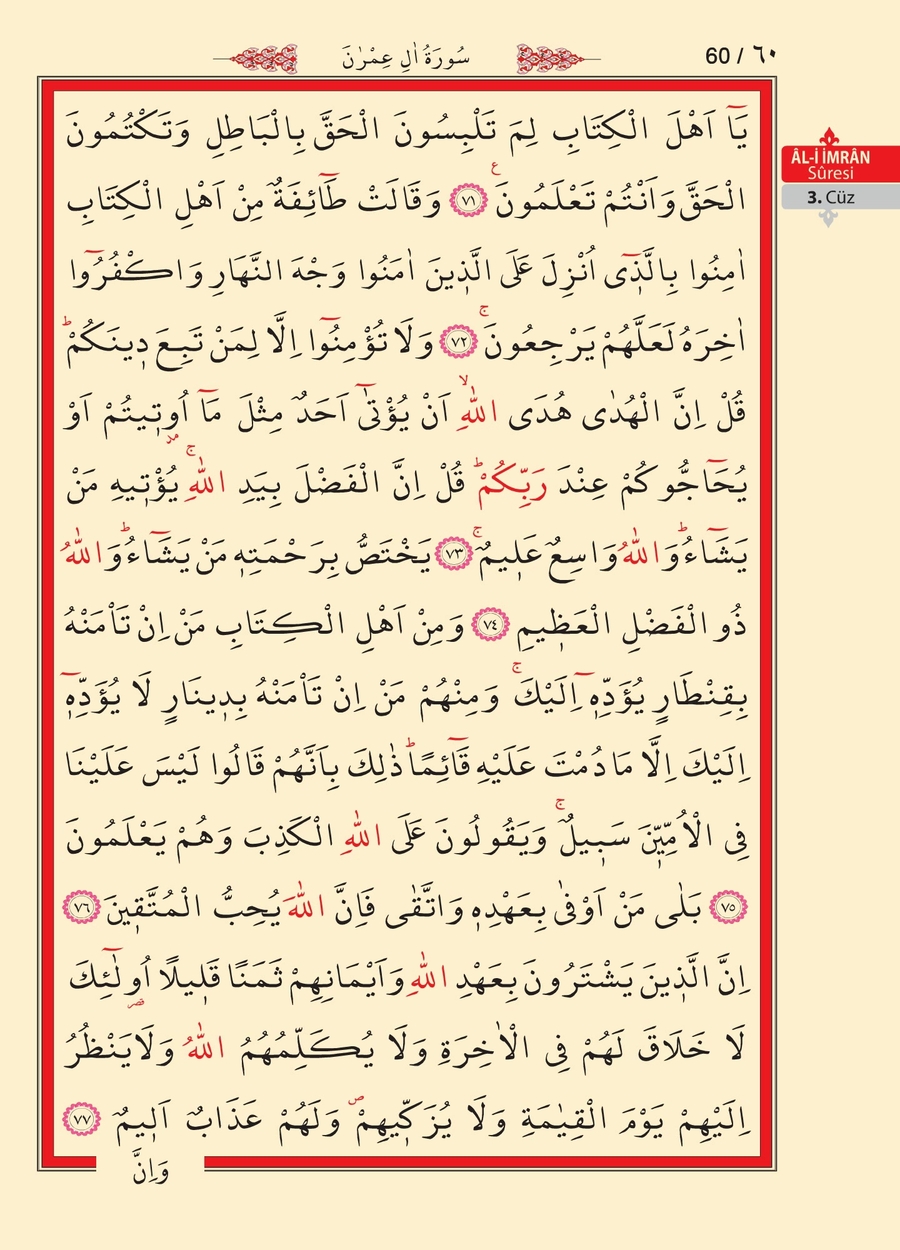 60 / ٦٠
سُورَةُ اٰلِ عِمْرٰنَ
ÂL-İ İMRÂN
Sûresi
3. Cüz
يَٓا اَهْلَ الْكِتَابِ لِمَ تَلْبِسُونَ الْحَقَّ بِالْبَاطِلِ وَتَكْتُمُونَ
الْحَقَّ وَاَنْتُمْ تَعْلَمُونَ۟ ﴿٧١﴾ وَقَالَتْ طَٓائِفَةٌ مِنْ اَهْلِ الْكِتَابِ
اٰمِنُوا بِالَّذ۪ٓى اُنْزِلَ عَلَى الَّذ۪ينَ اٰمَنُوا وَجْهَ النَّهَارِ وَاكْفُرُٓوا
اٰخِرَهُ لَعَلَّهُمْ يَرْجِعُونَۚ ﴿٧٢﴾ وَلَا تُؤْمِنُٓوا اِلَّا لِمَنْ تَبِعَ د۪ينَكُمْۜ
قُلْ اِنَّ الْهُدٰى هُدَى اللّٰهِۙ اَنْ يُؤْتٰٓى اَحَدٌ مِثْلَ مَٓا اُو۫ت۪يتُمْ اَوْ
يُحَٓاجُّوكُمْ عِنْدَ رَبِّكُمْۜ قُلْ اِنَّ الْفَضْلَ بِيَدِ اللّٰهِۚ يُؤْت۪يهِ مَنْ
يَشَٓاءُۜ وَاللّٰهُ وَاسِعٌ عَل۪يمٌۚ ﴿٧٣﴾ يَخْتَصُّ بِرَحْمَتِه۪ مَنْ يَشَٓاءُۜ وَاللّٰهُ
ذُو الْفَضْلِ الْعَظ۪يمِ ﴿٧٤﴾ وَمِنْ اَهْلِ الْكِتَابِ مَنْ اِنْ تَاْمَنْهُ
بِقِنْطَارٍ يُؤَدِّه۪ٓ اِلَيْكَۚ وَمِنْهُمْ مَنْ اِنْ تَاْمَنْهُ بِد۪ينَارٍ لَا يُؤَدِّه۪ٓ
اِلَيْكَ اِلَّا مَا دُمْتَ عَلَيْهِ قَٓائِمًاۜ ذٰلِكَ بِاَنَّهُمْ قَالُوا لَيْسَ عَلَيْنَا
فِى الْاُمِّيّ۪نَ سَب۪يلٌۚ وَيَقُولُونَ عَلَى اللّٰهِ الْكَذِبَ وَهُمْ يَعْلَمُونَ
﴿٧٥﴾ بَلٰى مَنْ اَوْفٰى بِعَهْدِه۪ وَاتَّقٰى فَاِنَّ اللّٰهَ يُحِبُّ الْمُتَّق۪ينَ ﴿٧٦﴾
اِنَّ الَّذ۪ينَ يَشْتَرُونَ بِعَهْدِ اللّٰهِ وَاَيْمَانِهِمْ ثَمَنًا قَل۪يلًا اُو۬لٰٓئِكَ
لَا خَلَاقَ لَهُمْ فِى الْاٰخِرَةِ وَلَا يُكَلِّمُهُمُ اللّٰهُ وَلَا يَنْظُرُ
اِلَيْهِمْ يَوْمَ الْقِيٰمَةِ وَلَا يُزَكّ۪يهِمْۖ وَلَهُمْ عَذَابٌ اَل۪يمٌ ﴿٧٧﴾
وَاِنَّ